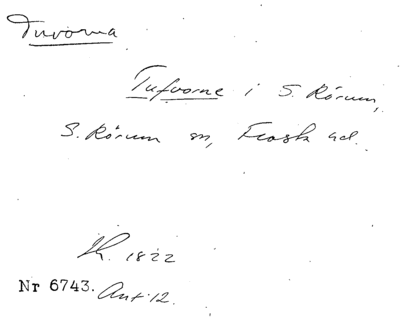 Tuvorna
Tufvorne i S. Rörum,
S. Rörum sn, Frosta hd.
Lh. 1822
Nr 6743. Ant. 12.